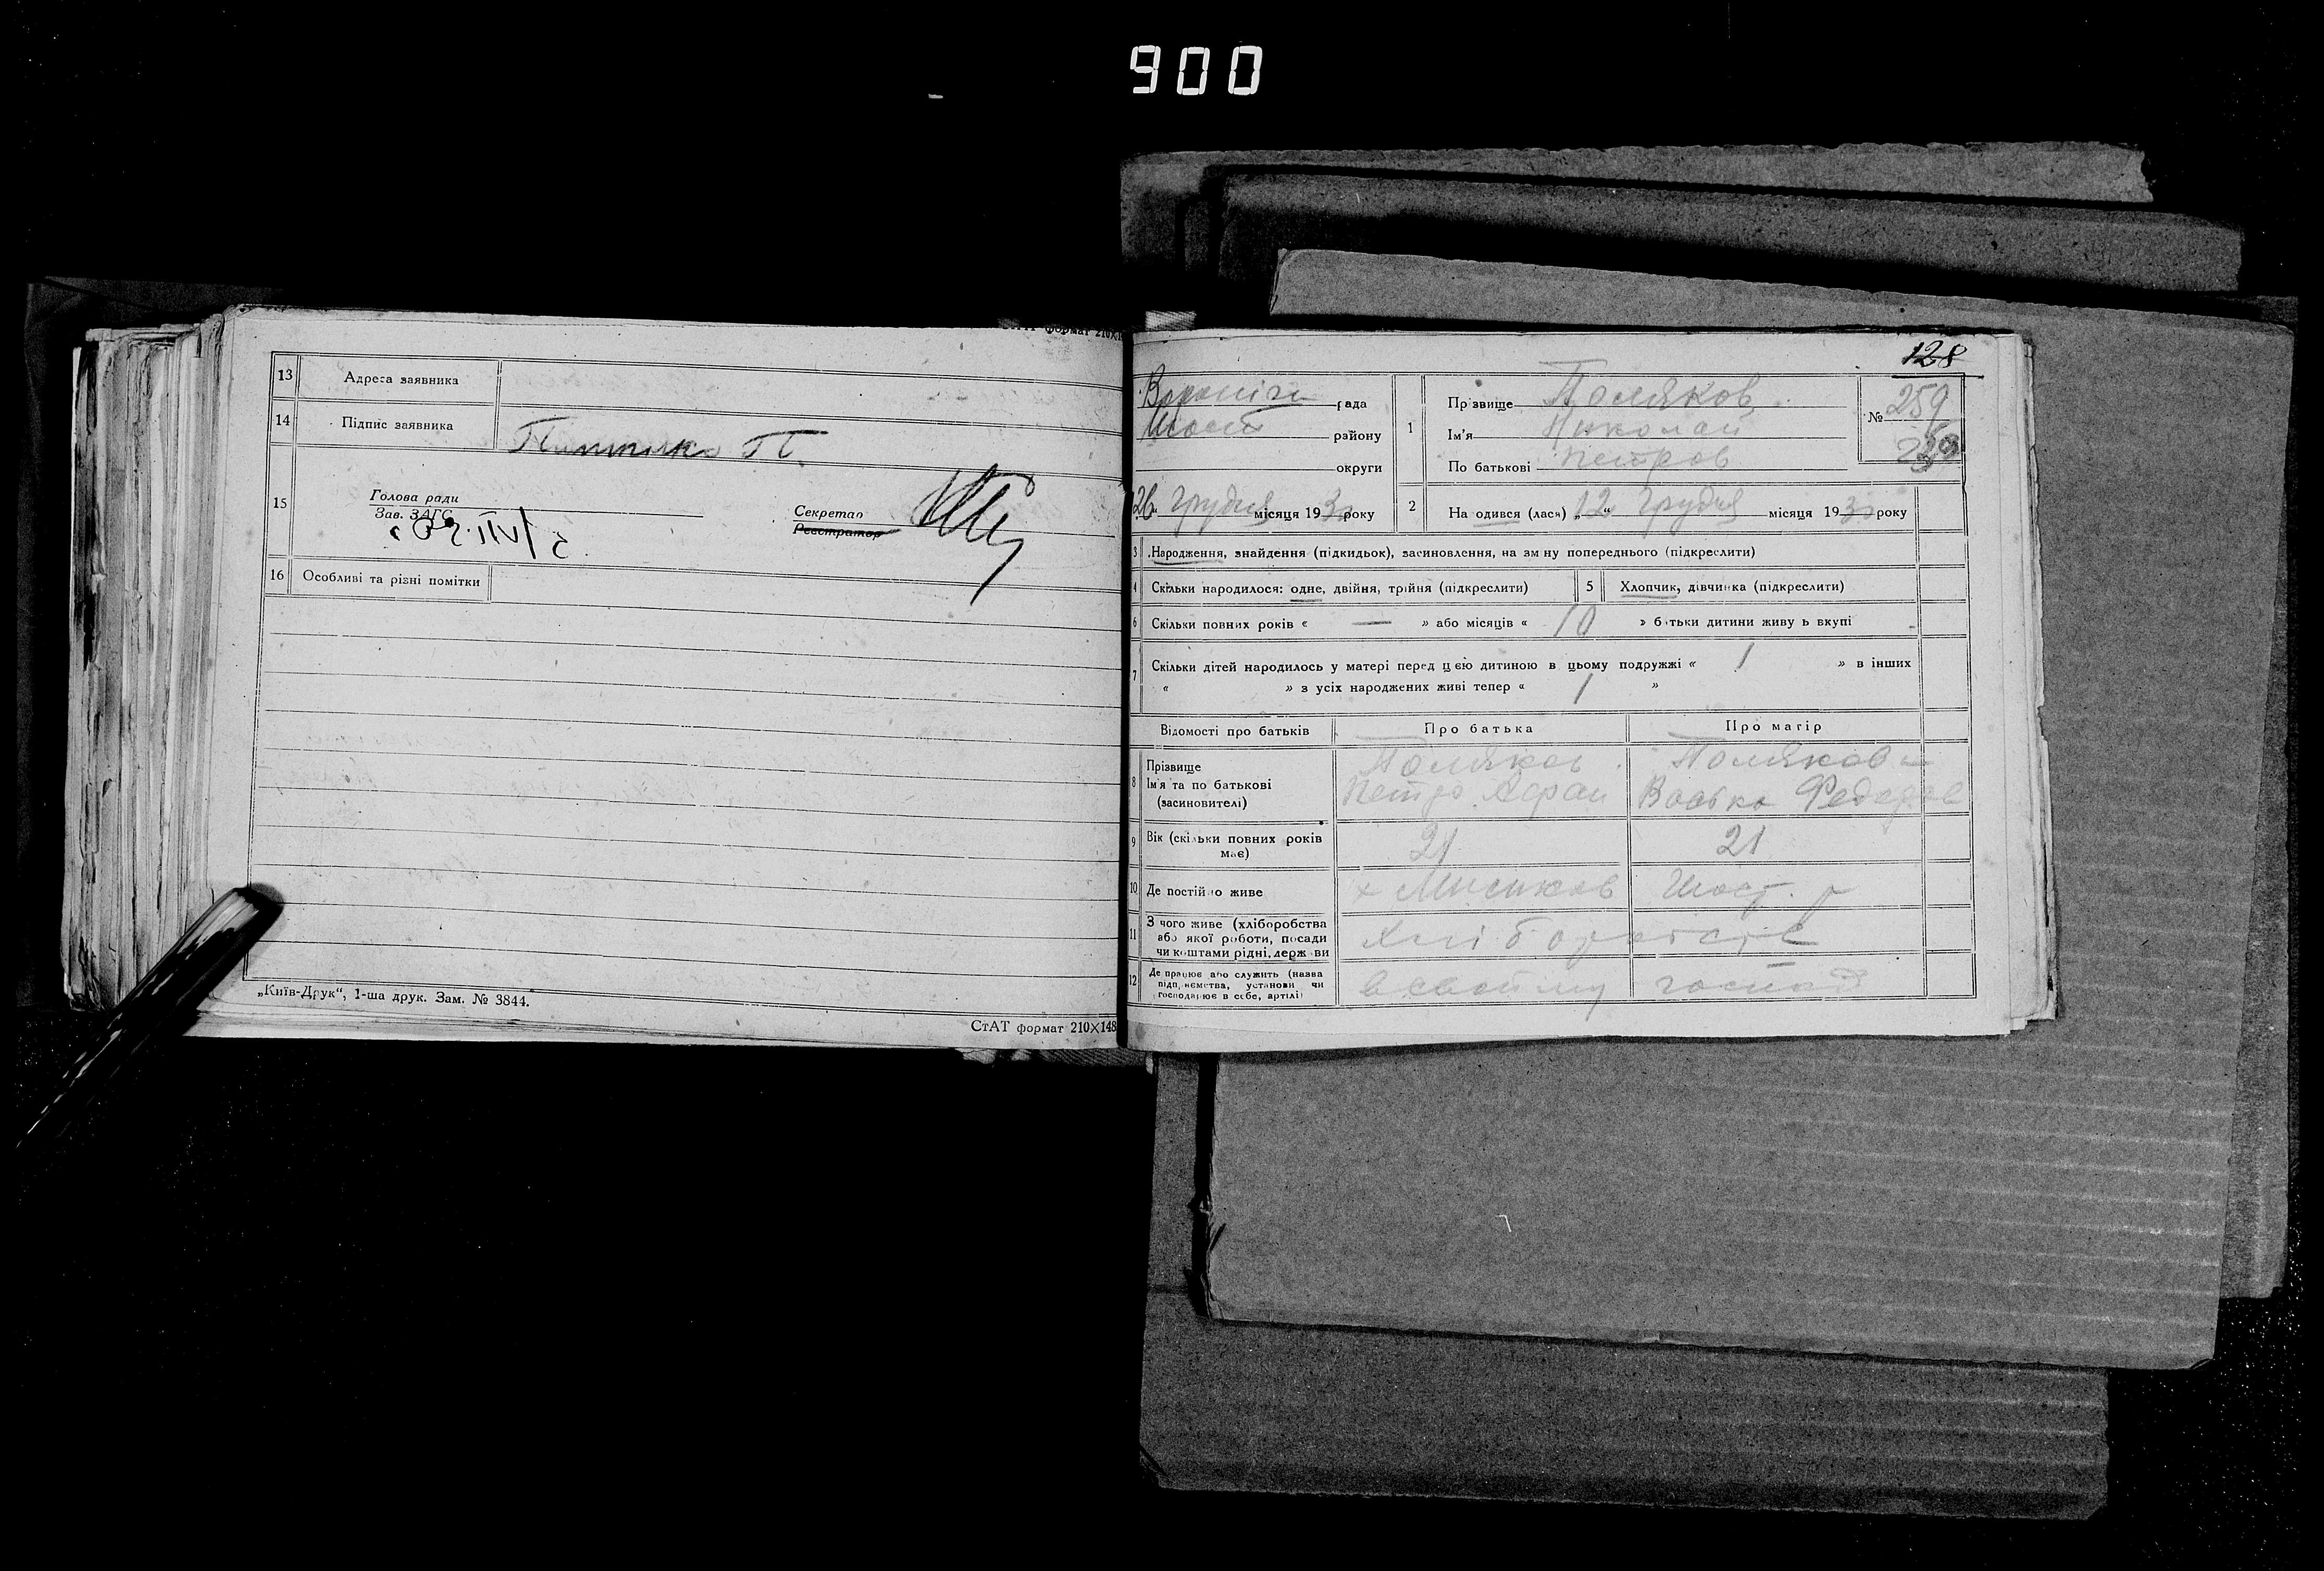 900
13 Адреса заявника
14 Підпис заявника
15 Голова ради
Зав. ЗАГС
Секретар
Реєстратор
16 Особливі та різні помітки
„Київ-Друк“, 1-ша друк. Зам. № 3844.
СтАТ формат 210×148
128
рада
району
округи
26 грудня місяця 1930 року
1 Прізвище Поляков
Ім'я Николай
По батькові Петров
№ 259
2 Народився (лася) „12“ грудня місяця 1930 року
3 Народження, знайдення (підкидьок), засиновлення, на зміну попереднього (підкреслити)
4 Скільки народилося: одне, двійня, трійня (підкреслити)
5 Хлопчик, дівчинка (підкреслити)
6 Скільки повних років « — » або місяців « 10 » батьки дитини живуть вкупі
7 Скільки дітей народилось у матері перед цією дитиною в цьому подружжі « 1 » в інших
« » з усіх народжених живі тепер « 1 »
Відомості про батьків Про батька Про матір
8 Прізвище
Ім'я та по батькові
(засиновителі)
Поляков
Петро
Полякова
Федоров
9 Вік (скільки повних років має) 21 21
10 Де постійно живе Шост. р
11 З чого живе (хліборобства
або якої роботи, посади
чи коштами рідні, держави
12 Де працює або служить (назва
підприємства, установи чи
господарює в себе, артілі)